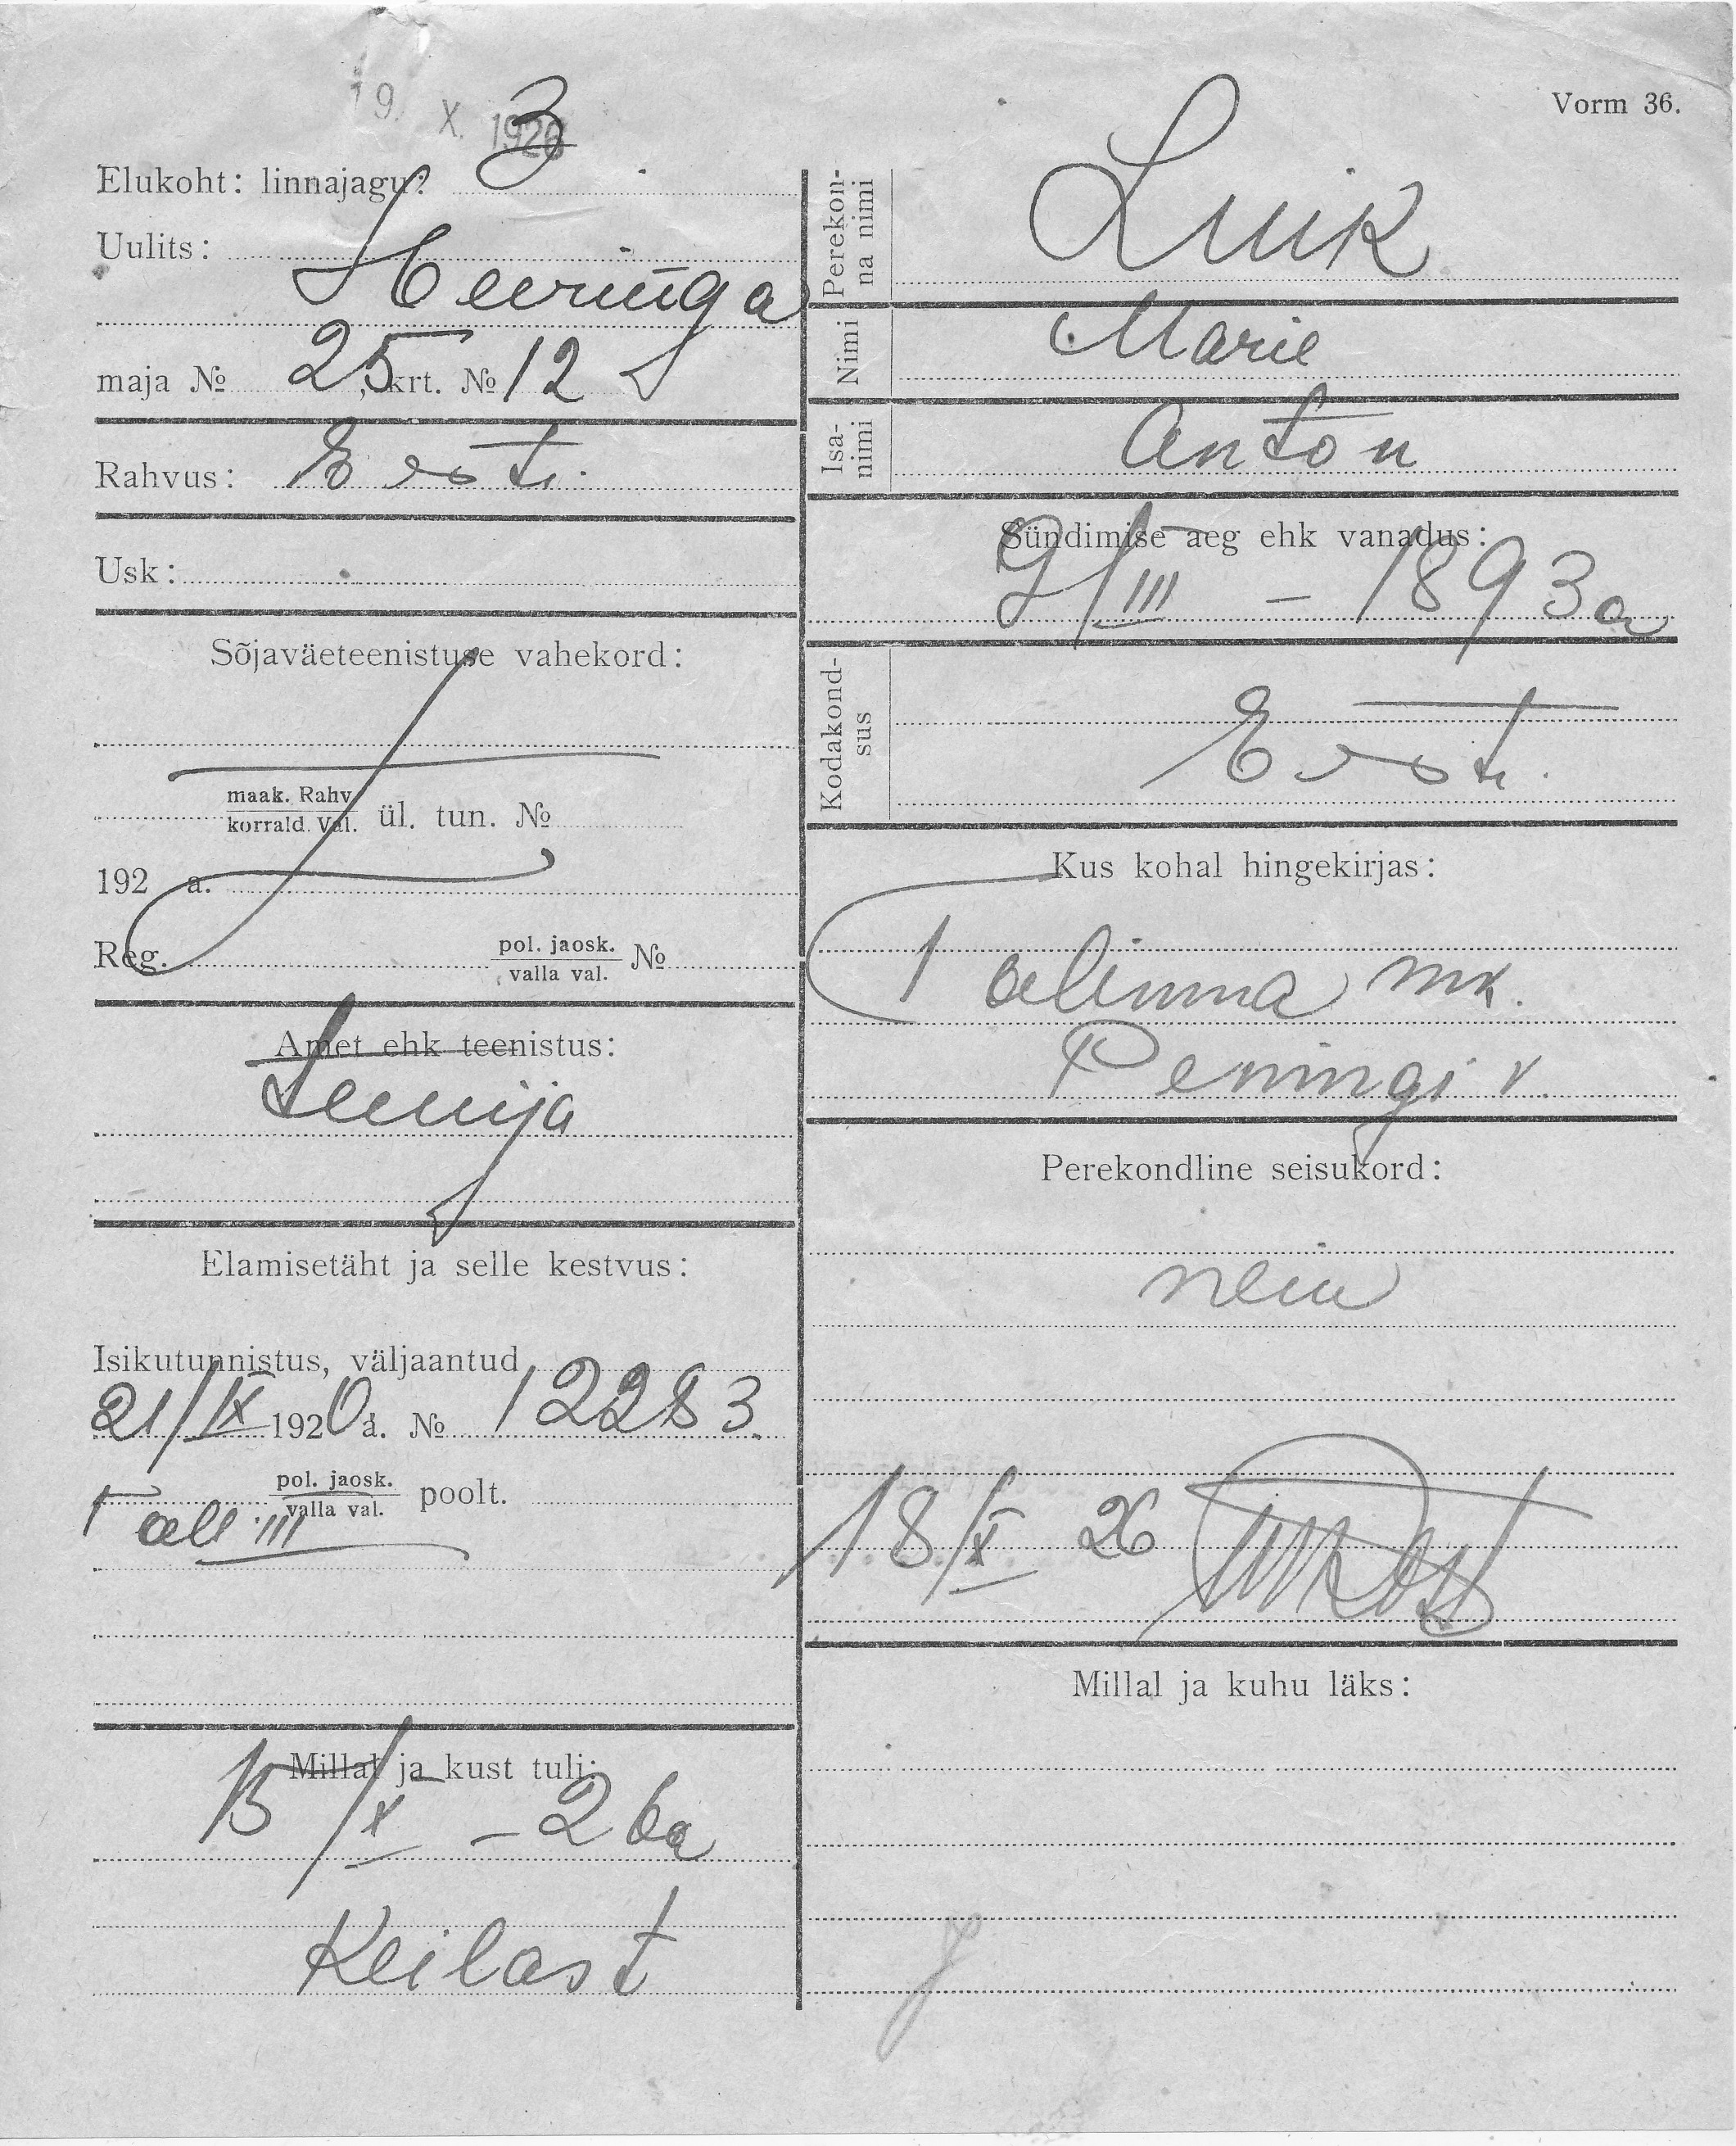 19. X. 1926
Vorm 36.
Elukoht: linnajagu: 3
Uulits:
Heeringa
maja № 25, krt. № 12
Rahvus: Eesti.
Usk:
Sõjaväeteenistuse vahekord:
maak. Rahv.
korrald. Val. ül. tun. №
192 a.
Reg. pol. jaosk. №
valla val.
Amet ehk teenistus:
Teenija
Elamisetäht ja selle kestvus:
Isikutunnistus, väljaantud
21/IX 1920 a. № 12283.
pol. jaosk. poolt.
valla val.
Tall. III
Millal ja kust tuli:
15/X – 26a
Keilast
Perekon-
na nimi
Luik
Nimi Marie
Isa-
nimi
Anton
Sündimise aeg ehk vanadus:
9/III – 1893a
Kodakond-
sus
Eesti.
Kus kohal hingekirjas:
Talinna mk.
Peningi v.
Perekondline seisukord:
neiu
18/X 26
Millal ja kuhu läks: